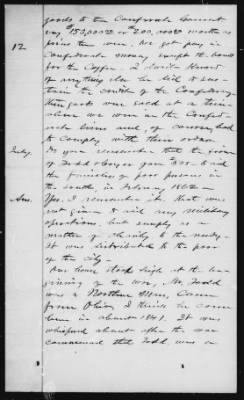 goods to the Confederate Government
say $150,000 or $200,000 worth as
prices then were. We got pay in
Confederate money except the
for the Coffee. I don't know
12 of anything else he did to sus-
tain the credit of the Confederacy.
These goods were sold at a time
when we were in the Confed-
erate lines and of course had
to comply with their orders.
Inty. Do you remember that the firm
of Todd &
gave $500 to aid
the families of poor persons in
the south in February 1862—
Ans. Yes. I remember it. That was
not given to aid any military
operations, but simply as a
matter of charity to the needy.
It was distributed to the poor
of the city.
Our house stood high at the be-
ginning of the war. Mr. Todd
was a Northern Man, came
from Ohio, I think he came
here in about 1841. It was
whispered about after the war
commenced that Todd was a